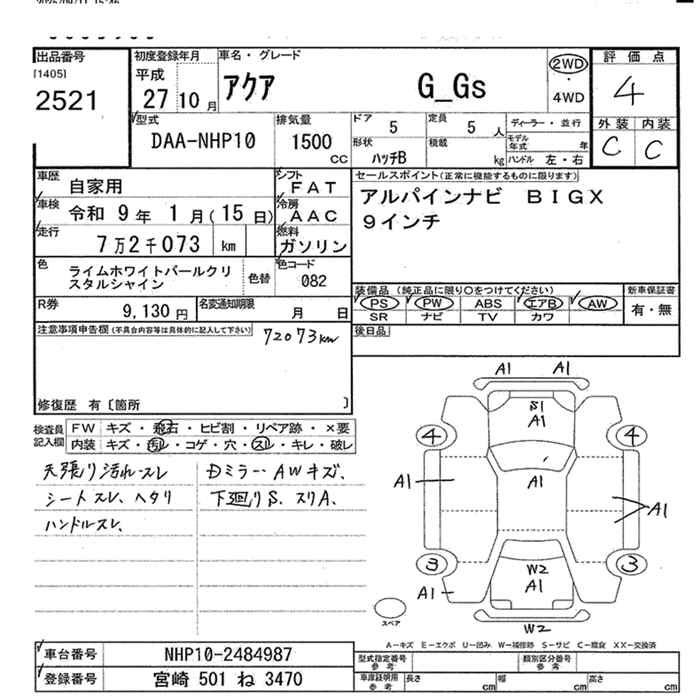 出品番号
[1405]
2521
初度登録年月
平成
27 10 月
車名・グレード
アクア G_Gs
2WD
・
4WD
評価点
4
外装 内装
C C
型式
DAA-NHP10
排気量
1500
CC
ドア 5
定員 5 人
形状
ハッチB
積載 kg
ディーラー・並行
モデル年式 年
ハンドル 左・右
車歴 自家用
シフト FAT
車検 令和 9 年 1 月(15 日)
冷房 AAC
走行 7万2千073 km
燃料 ガソリン
セールスポイント(正常に機能するものに限ります)
アルパインナビ BIGX
9インチ
色 ライムホワイトパールクリ
スタルシャイン
色替
色コード
082
装備品 (純正品に限り○をつけてください)
PS PW ABS エアB AW
SR ナビ TV カワ
新車保証書
有・無
R券 9,130 円
名変通知期限 月 日
後日品
注意事項申告欄(不具合内容等は具体的に記入して下さい)
72073km
修復歴 有〔箇所 〕
検査員
記入欄
FW キズ・飛石・ヒビ割・リペア跡・×要
内装 キズ・汚レ・コゲ・穴・スレ・キレ・破レ
天張り汚れ・スレ
シートスレ、ヘタリ
ハンドルスレ、
Dミラー・AWキズ、
下廻りS、スリA、
A1 A1
S1
A1
4 4
A1
A1
A1
3 3
W2
A1
A1
W2
スペア
A-キズ E-エクボ U-凹み W-補修跡 S-サビ C-腐食 XX-交換済
車台番号 NHP10-2484987
登録番号 宮崎 501 ね 3470
型式指定番号
参考
類別区分番号
参考
車庫証明用
参考
長さ cm
幅 cm
高さ cm